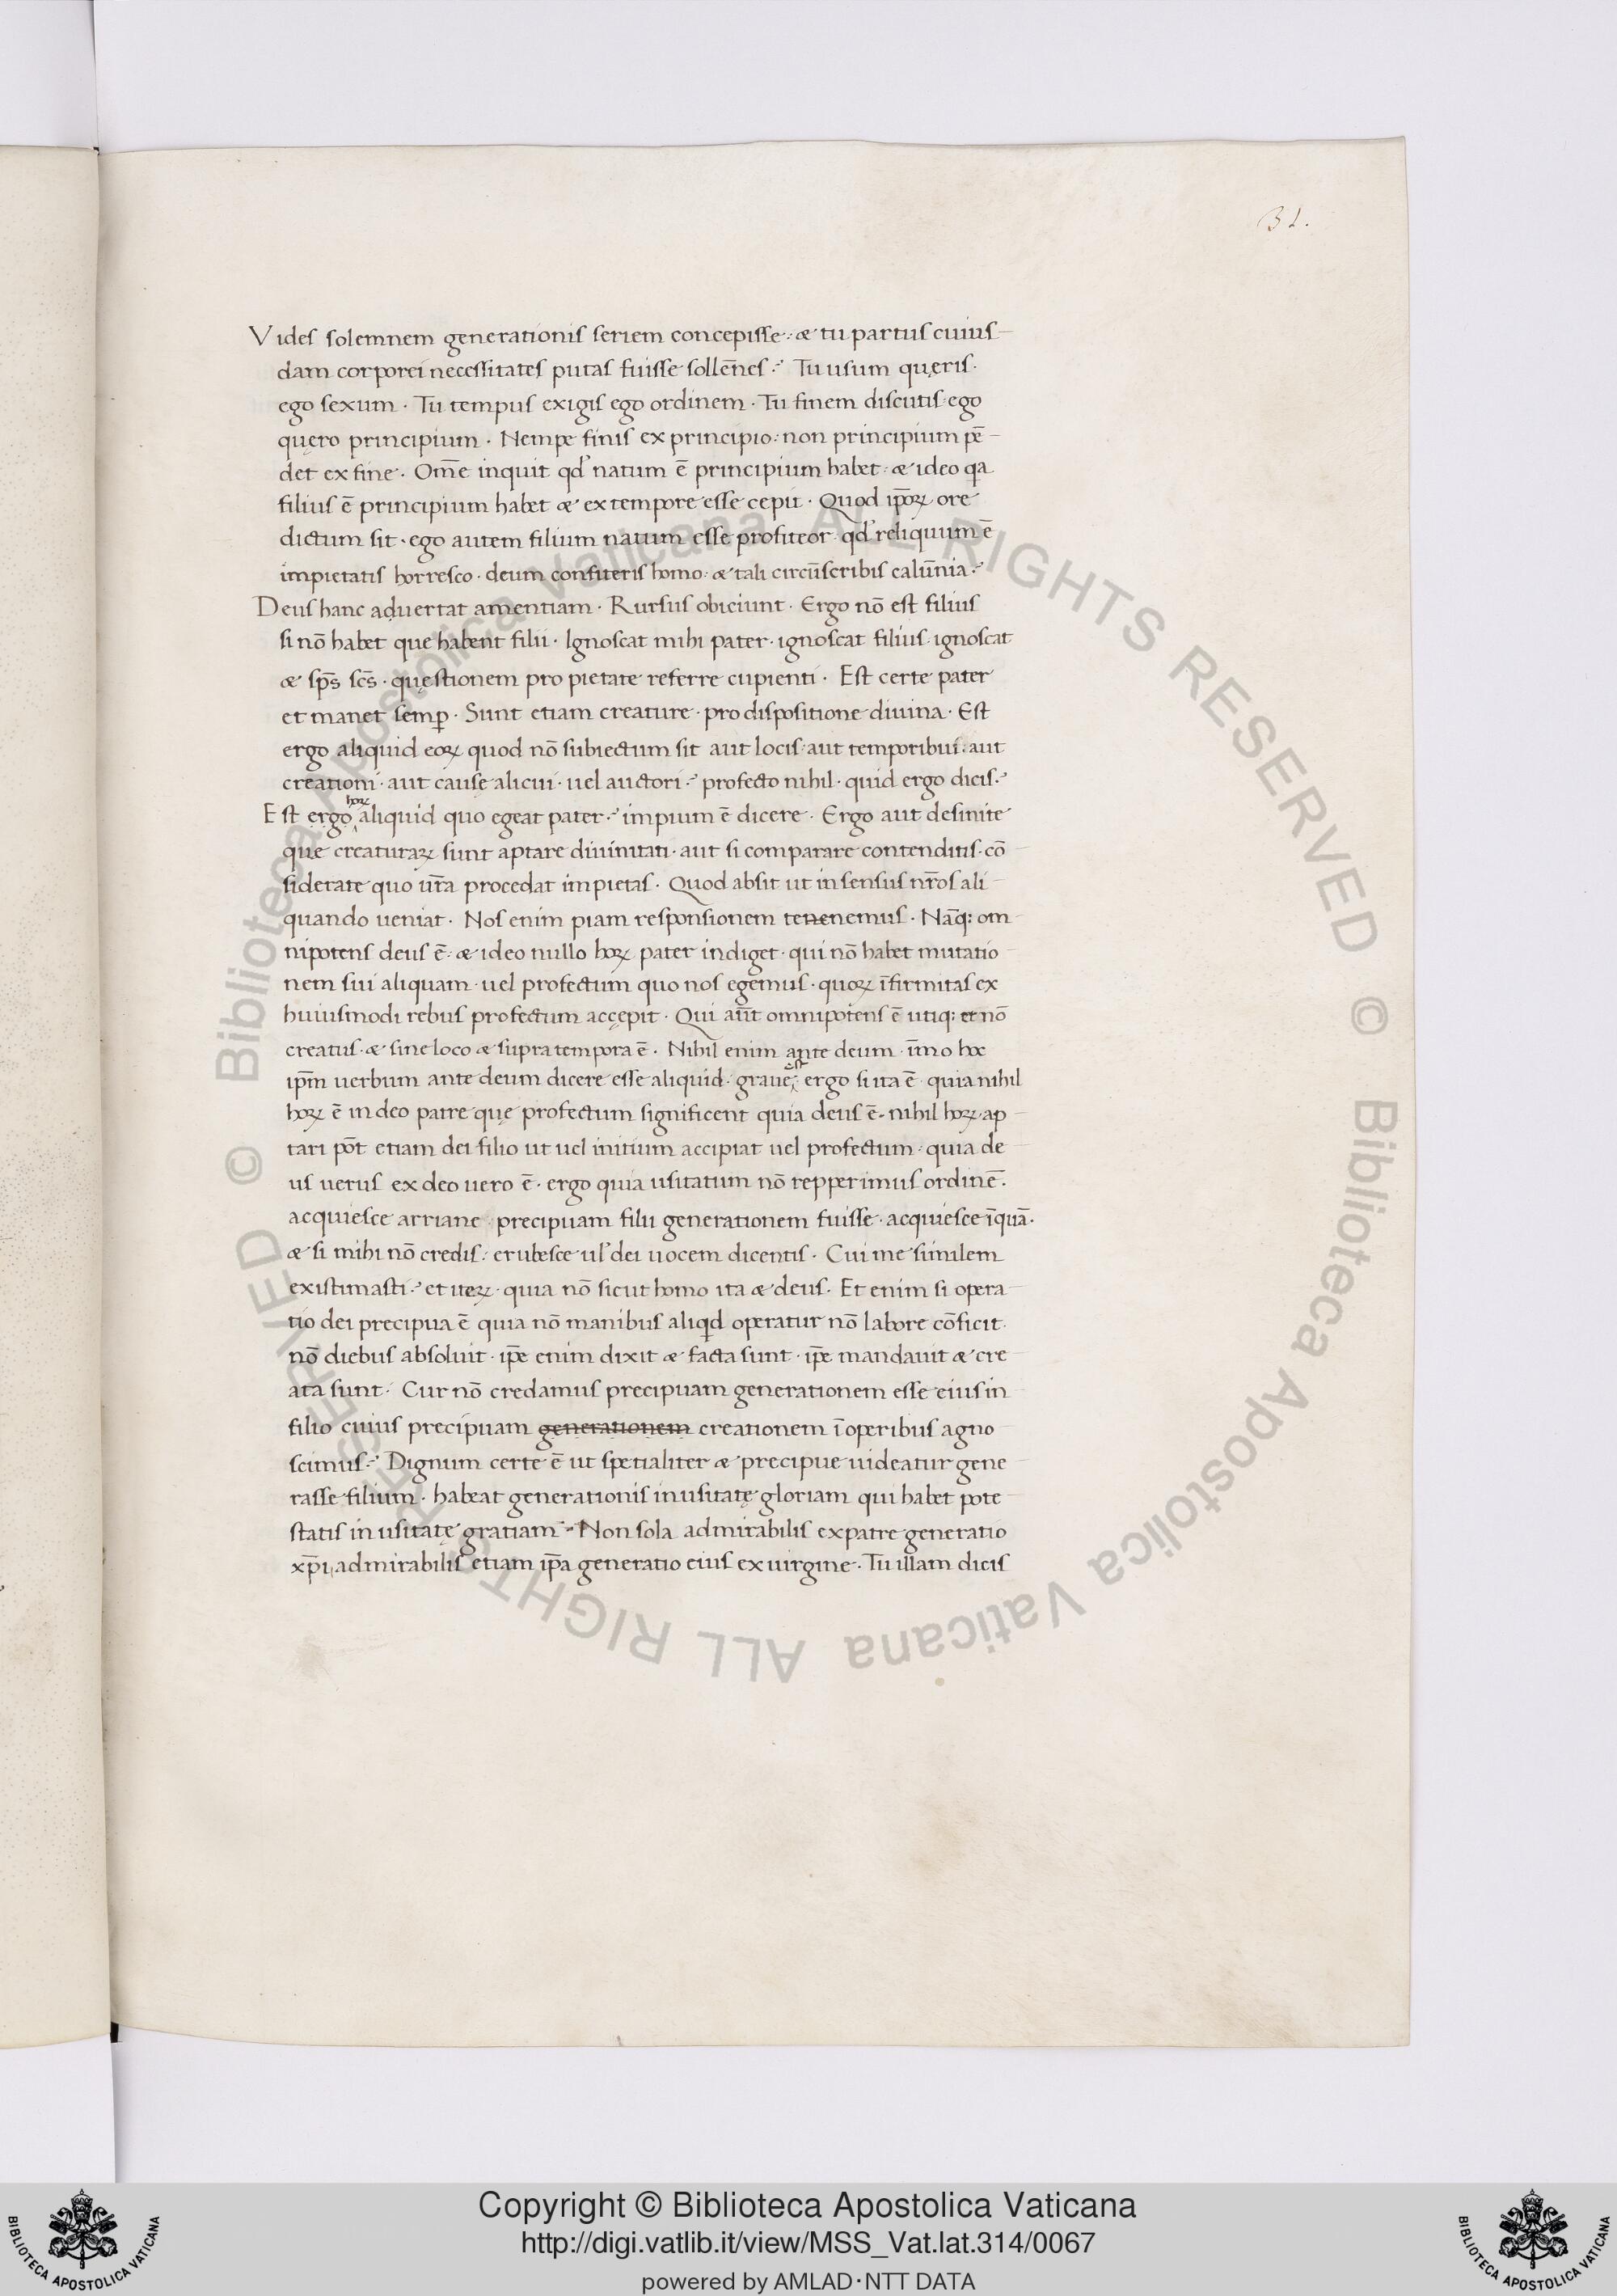 31.
Vides solemnem generationis seriem concepisse · æ tu partus cuius-
dam corporei necessitates putas fuisse sollēnes ·՚ Tu usum quęris ·
ego sexum · Tu tempus exigis ego ordinem · Tu finem discutis · ego
quęro principium · Nempe finis ex principio : non principium pē-
det ex fine · Om̄e inquit qđ natum ē principium habet · æ ideo qa
filius ē principium habet æ ex tempore esse cepit · Quod ip̄oꝝ ore
dictum sit · ego autem filium natum esse profiteor · qđ reliquum ē
impietatis horresco · deum confiteris homo · æ tali circūscribis calūnia ·՚
Deus hanc aduertat amentiam · Rursus obiciunt · Ergo nō est filius
si nō habet que habent filii · Ignoscat mihi pater · ignoscat filius · ignoscat
æ sp̄s sc̄s · quęstionem pro pietate referre cupienti · Est certe pater
et manet semꝑ · Sunt etiam creature · pro dispositione diuina · Est
ergo aliquid eoꝝ quod nō subiectum sit aut locis · aut temporibus · aut
creationi · aut causę alicui · uel auctori ·՚ profecto nihil · quid ergo dicis ·՚
hoꝝ
Est ergo aliquid quo egeat pater ·՚ impium ē dicere · Ergo aut desinite
que creaturaꝝ sunt aptare diuinitati · aut si comparare contenditis · cō-
siderate quo ur̄a procedat impietas · Quod absit ut in sensus nr̄os ali-
quando ueniat · Nos enim piam responsionem tenenemus · Nāq: om-
nipotens deus ē · æ ideo nullo hoꝝ pater indiget · qui nō habet mutatio-
nem sui aliquam · uel profectum quo nos egemus · quoꝝ īfirmitas ex
huiusmodi rebus profectum accępit · Qui aūt omnipotens ē utiq: et nō
creatus · æ sine loco æ supra tempora ē · Nihil enim ante deum · īmo hoc
est
ip̄m uerbum ante deum dicere esse aliquid · graue · ergo si ita ē · quia nihil
hoꝝ ē in deo patre quę profectum significent quia deus ē · nihil hoꝝ · ap-
tari pōt etiam dei filio ut uel initium accipiat uel profectum · quia de-
us uerus ex deo uero ē · ergo quia usitatum nō repperimus ordinē ·
acquiesce arriane · precipuam filii generationem fuisse · acquiesce īquā ·
æ si mihi nō credis : erubesce ul̕ dei uocem dicentis · Cui me similem
existimasti ·՚ et iteꝝ · quia nō sicut homo ita æ deus · Et enim si opera-
tio dei precipua ē quia nō manibus aliqd operatur nō labore cōficit ·
nō diebus absoluit · ip̄e enim dixit æ facta sunt · ip̄e mandauit æ cre-
ata sunt · Cur nō credamus precipuam generationem esse eius in
filio cuius precipuam generationem creationem ī operibus agno-
scimus ·՚ Dignum certe ē ut spetialiter æ precipue uideatur gene-
rasse filium · habeat generationis inusitatę gloriam qui habet pote-
statis in usitatę gratiam · Non sola admirabilis ex patre generatio
xp̄i, admirabilis etiam ip̄a generatio eius ex uirgine · Tu illam dicis
© Biblioteca Apostolica Vaticana ALL RIGHTS RESERVED © Biblioteca Apostolica Vaticana ALL RIGHTS RESERVED
Copyright © Biblioteca Apostolica Vaticana
http://digi.vatlib.it/view/MSS_Vat.lat.314/0067
powered by AMLAD·NTT DATA
BIBLIOTECA APOSTOLICA VATICANA
BIBLIOTECA APOSTOLICA VATICANA